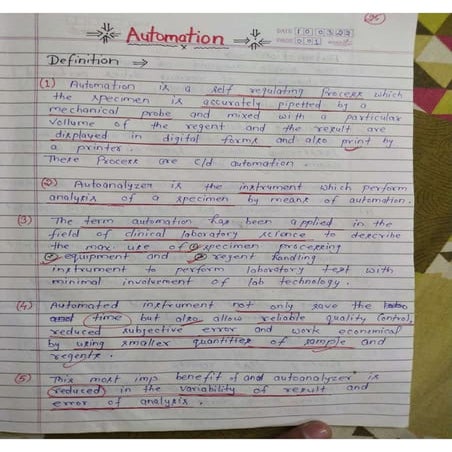 25
Automation
DATE 10 03 22
PAGE 001
Definition ⇒
(1) Automation is a self regulating Process which
the specimen is accurately pipetted by a
mechanical probe and mixed with a particular
volume of the regent and the result are
displayed in digital forms and also print by
a printer.
These Process are c/d automation.
(2) Autoanalyzer is the instrument which perform
analysis of a specimen by means of automation.
(3) The term automation has been applied in the
field of clinical laboratory science to describe
the max. use of ① specimen processing
② equipment and ③ regent handling
instrument to perform laboratory test with
minimal involvement of lab technology.
(4) Automated instrument not only save the
time but also allow reliable quality control,
reduced subjective error and work economical
by using smaller quantities of sample and
regents.
(5) This most imp benefit of and autoanalyzer is
reduced in the variability of result and
error of analysis.